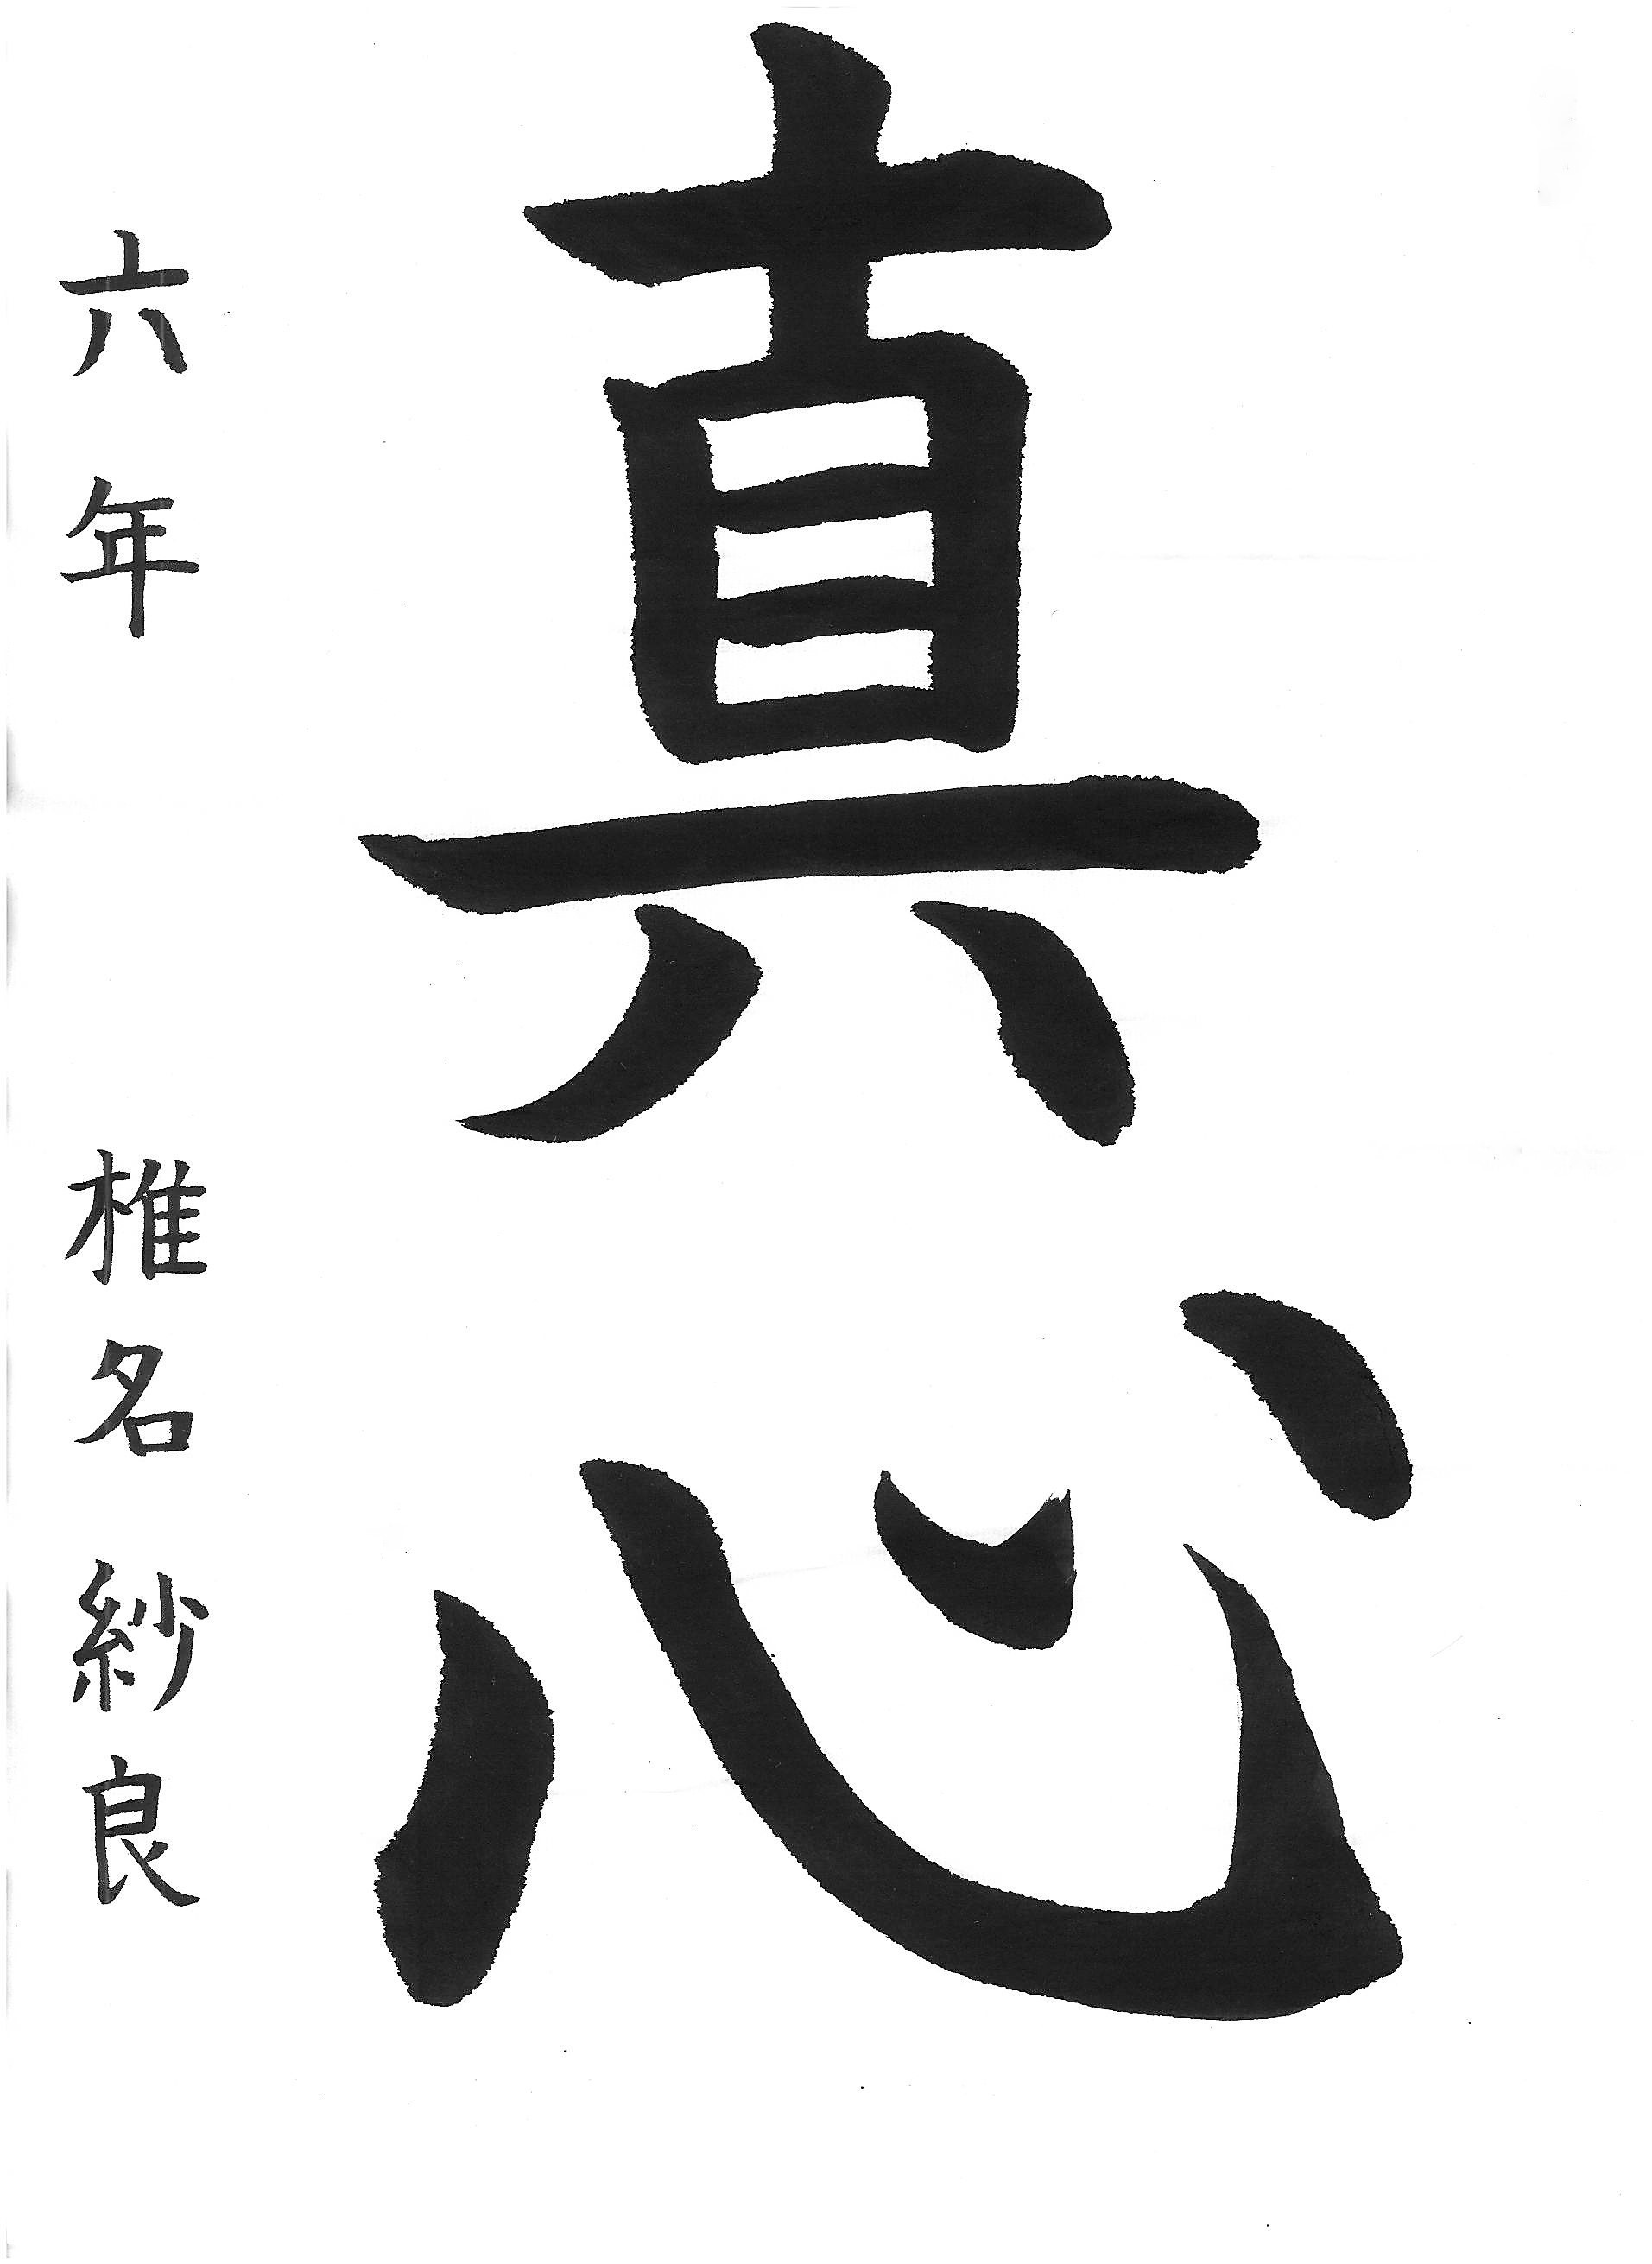 真心
六年 椎名紗良